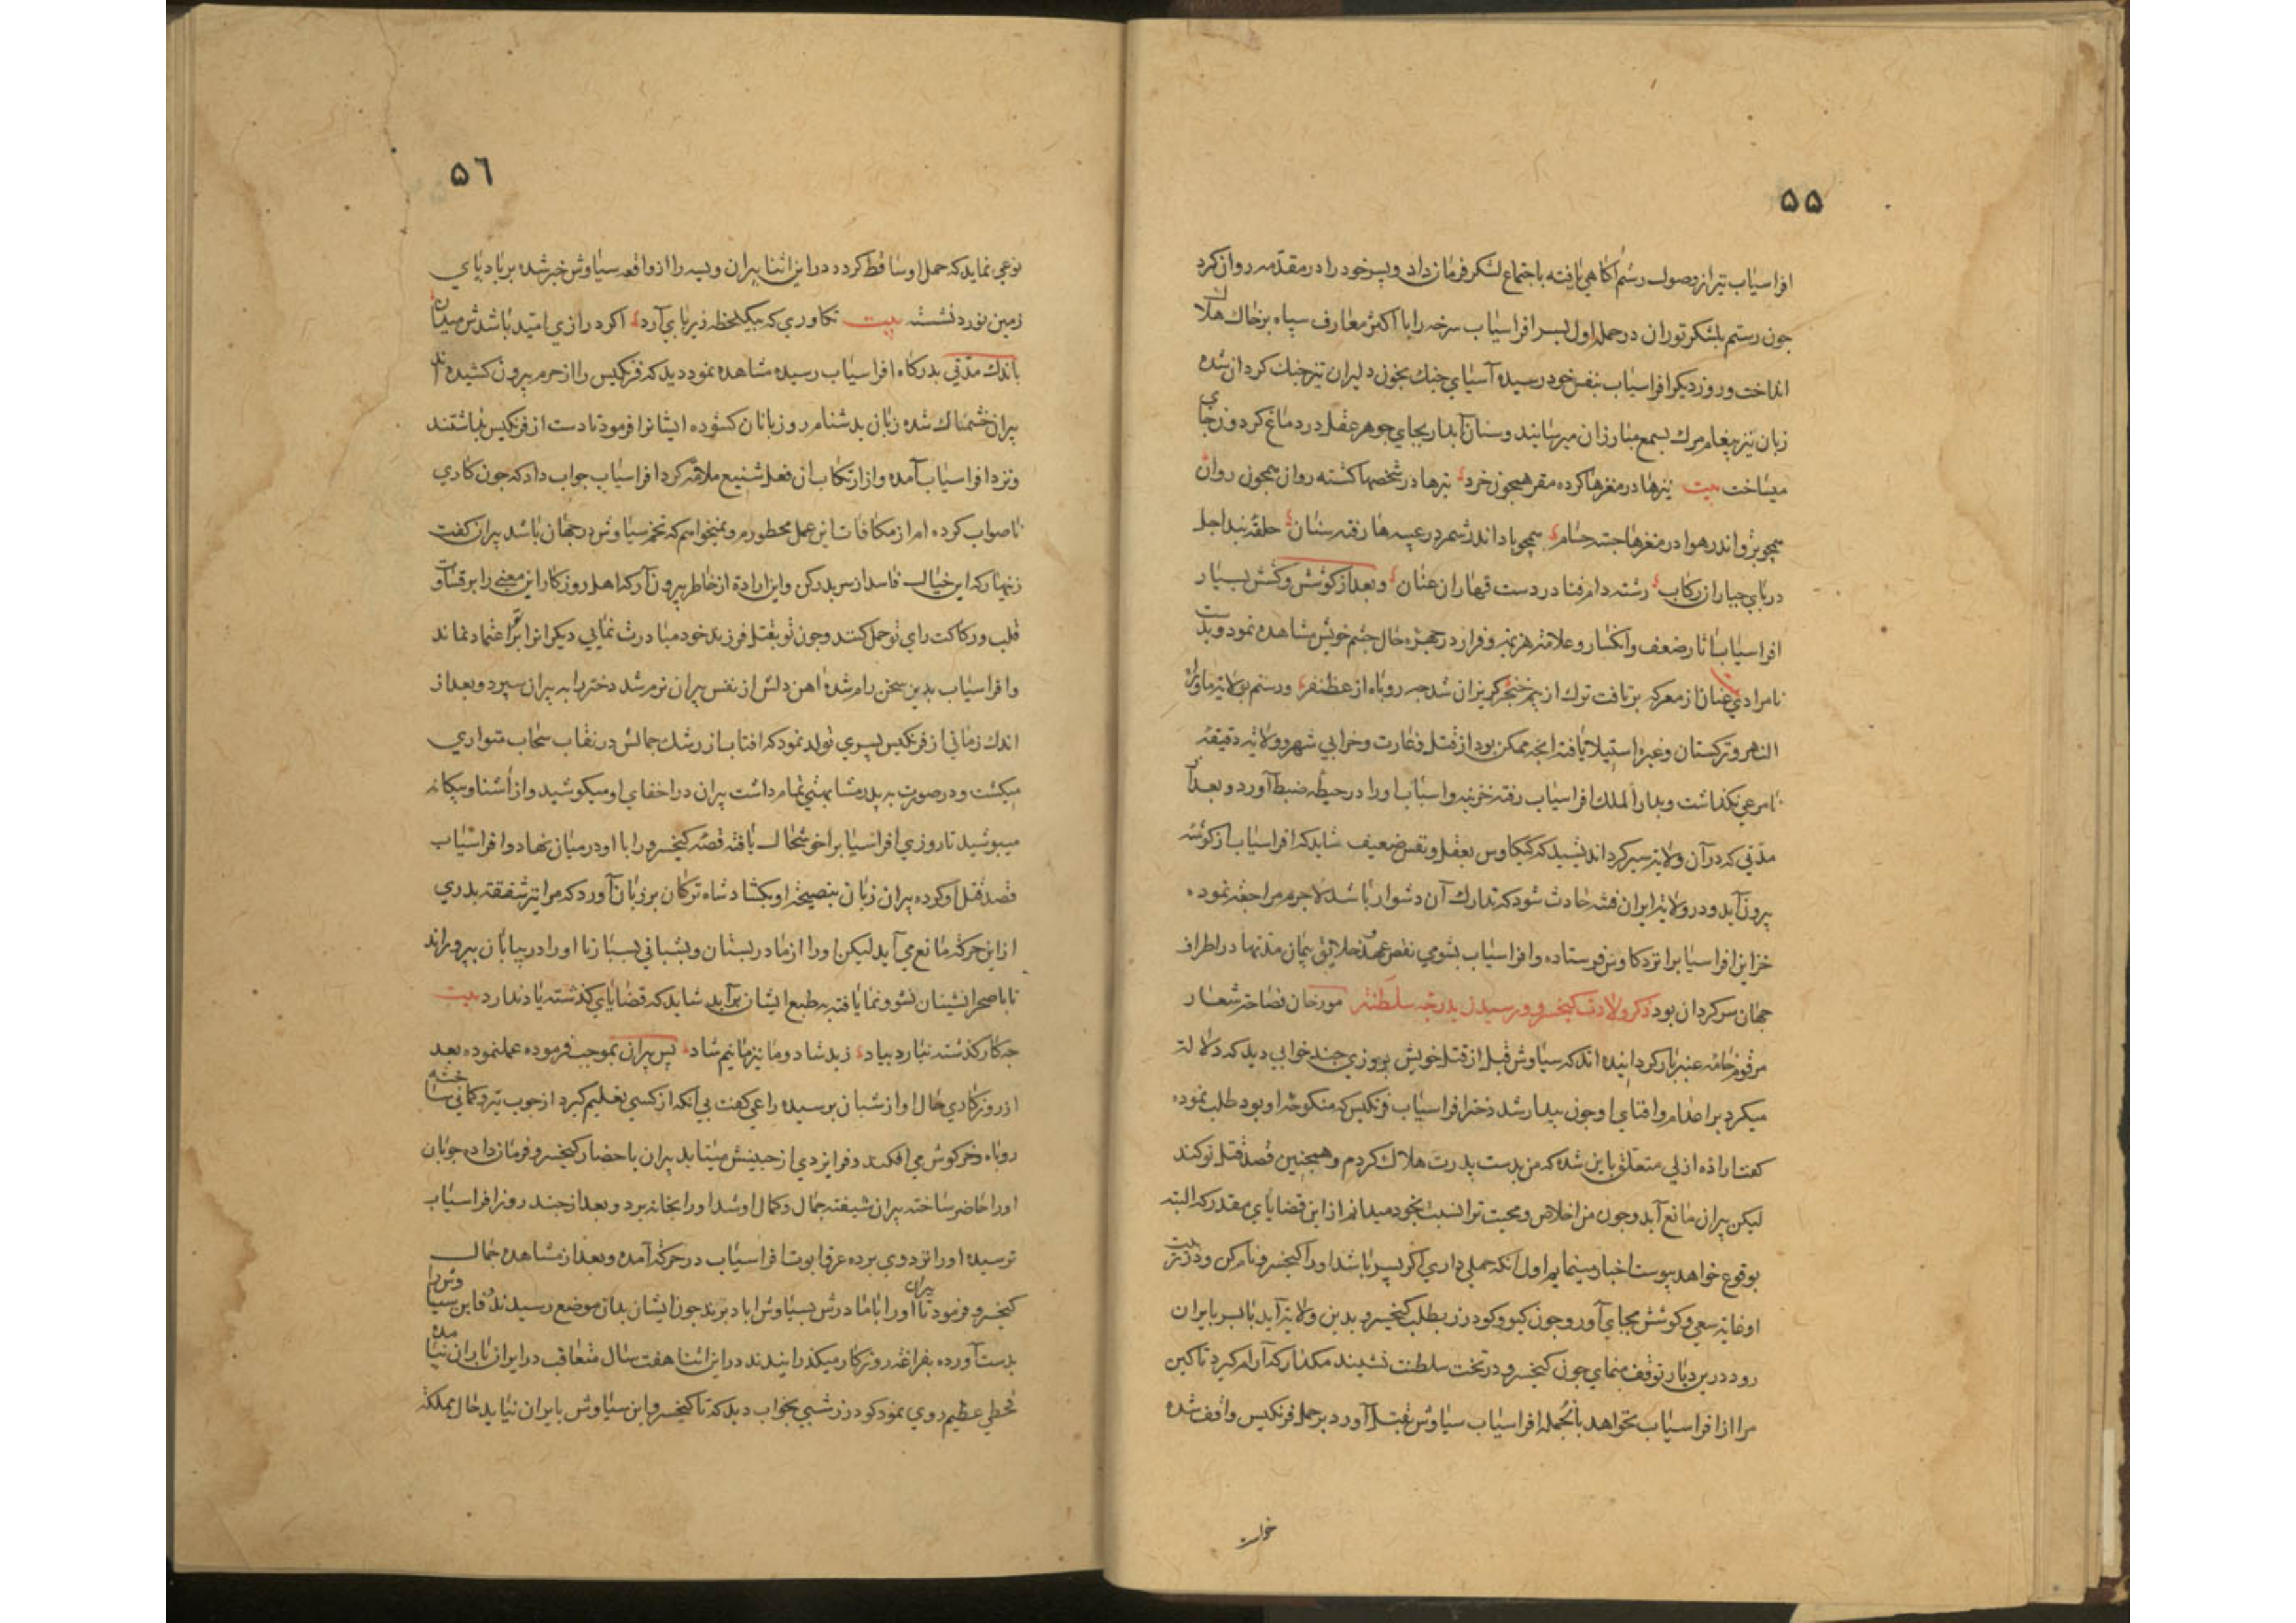 ۵۵
افراسیاب نیز از وصول رستم آکاهی یافته باجتماع لشکر فرمان داد و پسر خود را در مقدمه روان کرد
جون رستم بلشکر توران در حمله اول پسر افراسیاب سرخه را با اکثر معارف سپاه بر خاک هلاک
انداخت و روز دیکر افراسیاب بنفس خود رسیده آسیای جنک بخون دلیران تیز جنک کردان شده
زبان تیز پیغام مرک بسمع مبارزان میرسانید و سنان آبدار بجای جوهر عقل در دماغ کردون جای
میساخت بیت تیرها در مغزها کرده مقر همچون خرد نیزها در شخصها کشته روان همچون روان
همچو بر اندر هوا در مغزها جسته حسام همچو باد اندر شمر در عیبه ها رفته سنان حلقه بند اجل
در پای جباران رکاب رشته دام فنا در دست قهاران عنان و بعد از کوشش و کشش بسیار
افراسیاب آثار ضعف و انکسار و علامة هزیمة و فرار در جهره حال حشم خویش مشاهده نمود و بدست
نامرادی عنان از معرکه برتافت ترک از بیم خنجر کریزان شد جه روباه از غظنفر و رستم بولایة ماوراء
النهر و ترکستان و غیره استیلا یافته انجه ممکن بود از قتل و غارت و خرابی شهر و ولایة دقیقه
نامرعی نکذاشت و بدار الملک افراسیاب رفته خزینه و اسباب اورا در حیطه ضبط آورد و بعد از
مدتی که در آن ولایة سیر کرد اندیشید که کیکاوس بعقل و نفس ضعیف شاید که افراسیاب از کوشه
بیرون آید و در ولایة ایران فتنه حادث شود که تدارک آن دشوار باشد لاجرم مراجعة نموده
خزاین افراسیابرا نزد کاوس فرستاده و افراسیاب بشومی نقض عهد خلایق پیمان مدتها در اطراف
جهان سرکردان بود ذکر ولادت کیخسرو و رسیدن بدرجه سلطنة مورخان فصاحة شعار
مرقوم خامه عنبر بار کردانیده اند که سیاوش قبل از قتل خویش بروزی جند خوابی دید که دلالة
میکرد بر اعدام و افنای او جون بیدار شد دختر افراسیاب فرنکیس که منکوحة او بود طلب نموده
کفت اراده ازلی متعلق باین شده که من بدست پدرت هلاک کردم و همچنین قصد قتل تو کند
لیکن پیران مانع آید و جون من اخلاص و محبت ترا نسبت بخود میدانم از این قضایای مقدر که البته
بوقوع خواهد پیوست اخبار مینمایم اول انکه حملی داری اکر پسر باشد اورا کیخسرو نام کن و در تربیت
او غایة سعی و کوشش بجای آور و جون کیو کودرز بطلب کیخسرو بدین ولایة آید با پسر بایران
رو در این دیار توقف منمای جون کیخسرو در تخت سلطنت نشیند مکذار که آرام کیرد تا کین
مرا از افراسیاب نخواهد بالجمله افراسیاب سیاوش بقتل آورد بر حمل فرنکیس واقف شده
۵٦
نوعی نماید که حمل او ساقط کردد در این اثنا پیران ویسه را از واقعه سیاوش خبر شده بر باد پای
زمین نورد نشسته بیت تکاوری که بیکلحظه زیر پای آرد اکر درازی امید باشدش میدان
باندک مدتی بدرکاه افراسیاب رسیده مشاهده نمود دید که فرنکیس را از حرم بیرون کشیده اند
پیران خشمناک شده زبان بدشنام روزبانان کشوده ایشانرا فرمود تا دست از فرنکیس بداشتند
و نزد افراسیاب آمده و از ارتکاب آن فعل شنیع ملامة کرد افراسیاب جواب داد که جون کاری
ناصواب کرده ام از مکافات این عمل محظورم و نمیخواهم که تخم سیاوش در جهان باشد پیران کفت
زنهار که این خیال فاسد از سر بدر کن و این اراده از خاطر بیرون آر که اهل روزکار این معنی را بر قساوت
قلب و رکاکت رای تو حمل کنند و جون تو بقتل فرزند خود مبادرت نمایی دیکرانرا بر تو اعتماد نماند
و افراسیاب بدین سخن رام شده اهن دلش از نفس پیران نرم شد دختر را به پیران سپرد و بعد از
اندک زمانی از فرنکیس پسری تولد نمود که افتاب از رشک جمالش در نقاب سحاب متواری
میکشت و در صورت به پدر مشابهتی تمام داشت پیران در اخفای او میکوشید و از آشنا و بیکانه
میپوشید تا روزی افراسیابرا خوشحال یافته قصه کیخسرو را با او در میان نهاد و افراسیاب
قصد قتل او کرده پیران زبان بنصیحة او بکشاد شاه ترکان بر زبان آورد که مرا نیز شفقة پدری
از این حرکة مانع می آید لیکن اورا از مادر بستان و بشبانی بسپار تا اورا در بیابان بپروراند
تا با صحرانشینان نشو و نما یافته به طبع ایشان برآید شاید که قضایای کذشته یاد ندارد بیت
جه کار کذشته نیارد بیاد زید شاد و ما نیز مانیم شاد پس پیران بموجب فرموده عمل نموده بعد
از روزکاری حال او از شبان پرسیده راعی کفت بی انکه از کسی تعلیم کیرد از جوب تیر و کمانی ساخته
روباه و خرکوش می افکند و فر ایزدی از جبینش میتابد پیران باحضار کیخسرو فرمان داد جوپان
اورا حاضر ساخته پیران شیفته جمال و کمال او شد اورا بخانه برد و بعد از جند روز افراسیاب
ترسیده اورا نزد وی برده عرق ابوت افراسیاب در حرکة آمده و بعد از مشاهده جمال
کیخسرو فرمود تا پیران اورا با مادرش بسیاوش اباد برند جون ایشان بدان موضع رسیدند فاین سیاوش را
بدست آورده بفراغة روزکار میکذرانیدند در این اثنا هفت سال متعاقب در ایران باران نیامده
قحطی عظیم روی نمود کودرز شبی بخواب دید که تا کیخسرو ابن سیاوش بایران نیاید حال مملکة